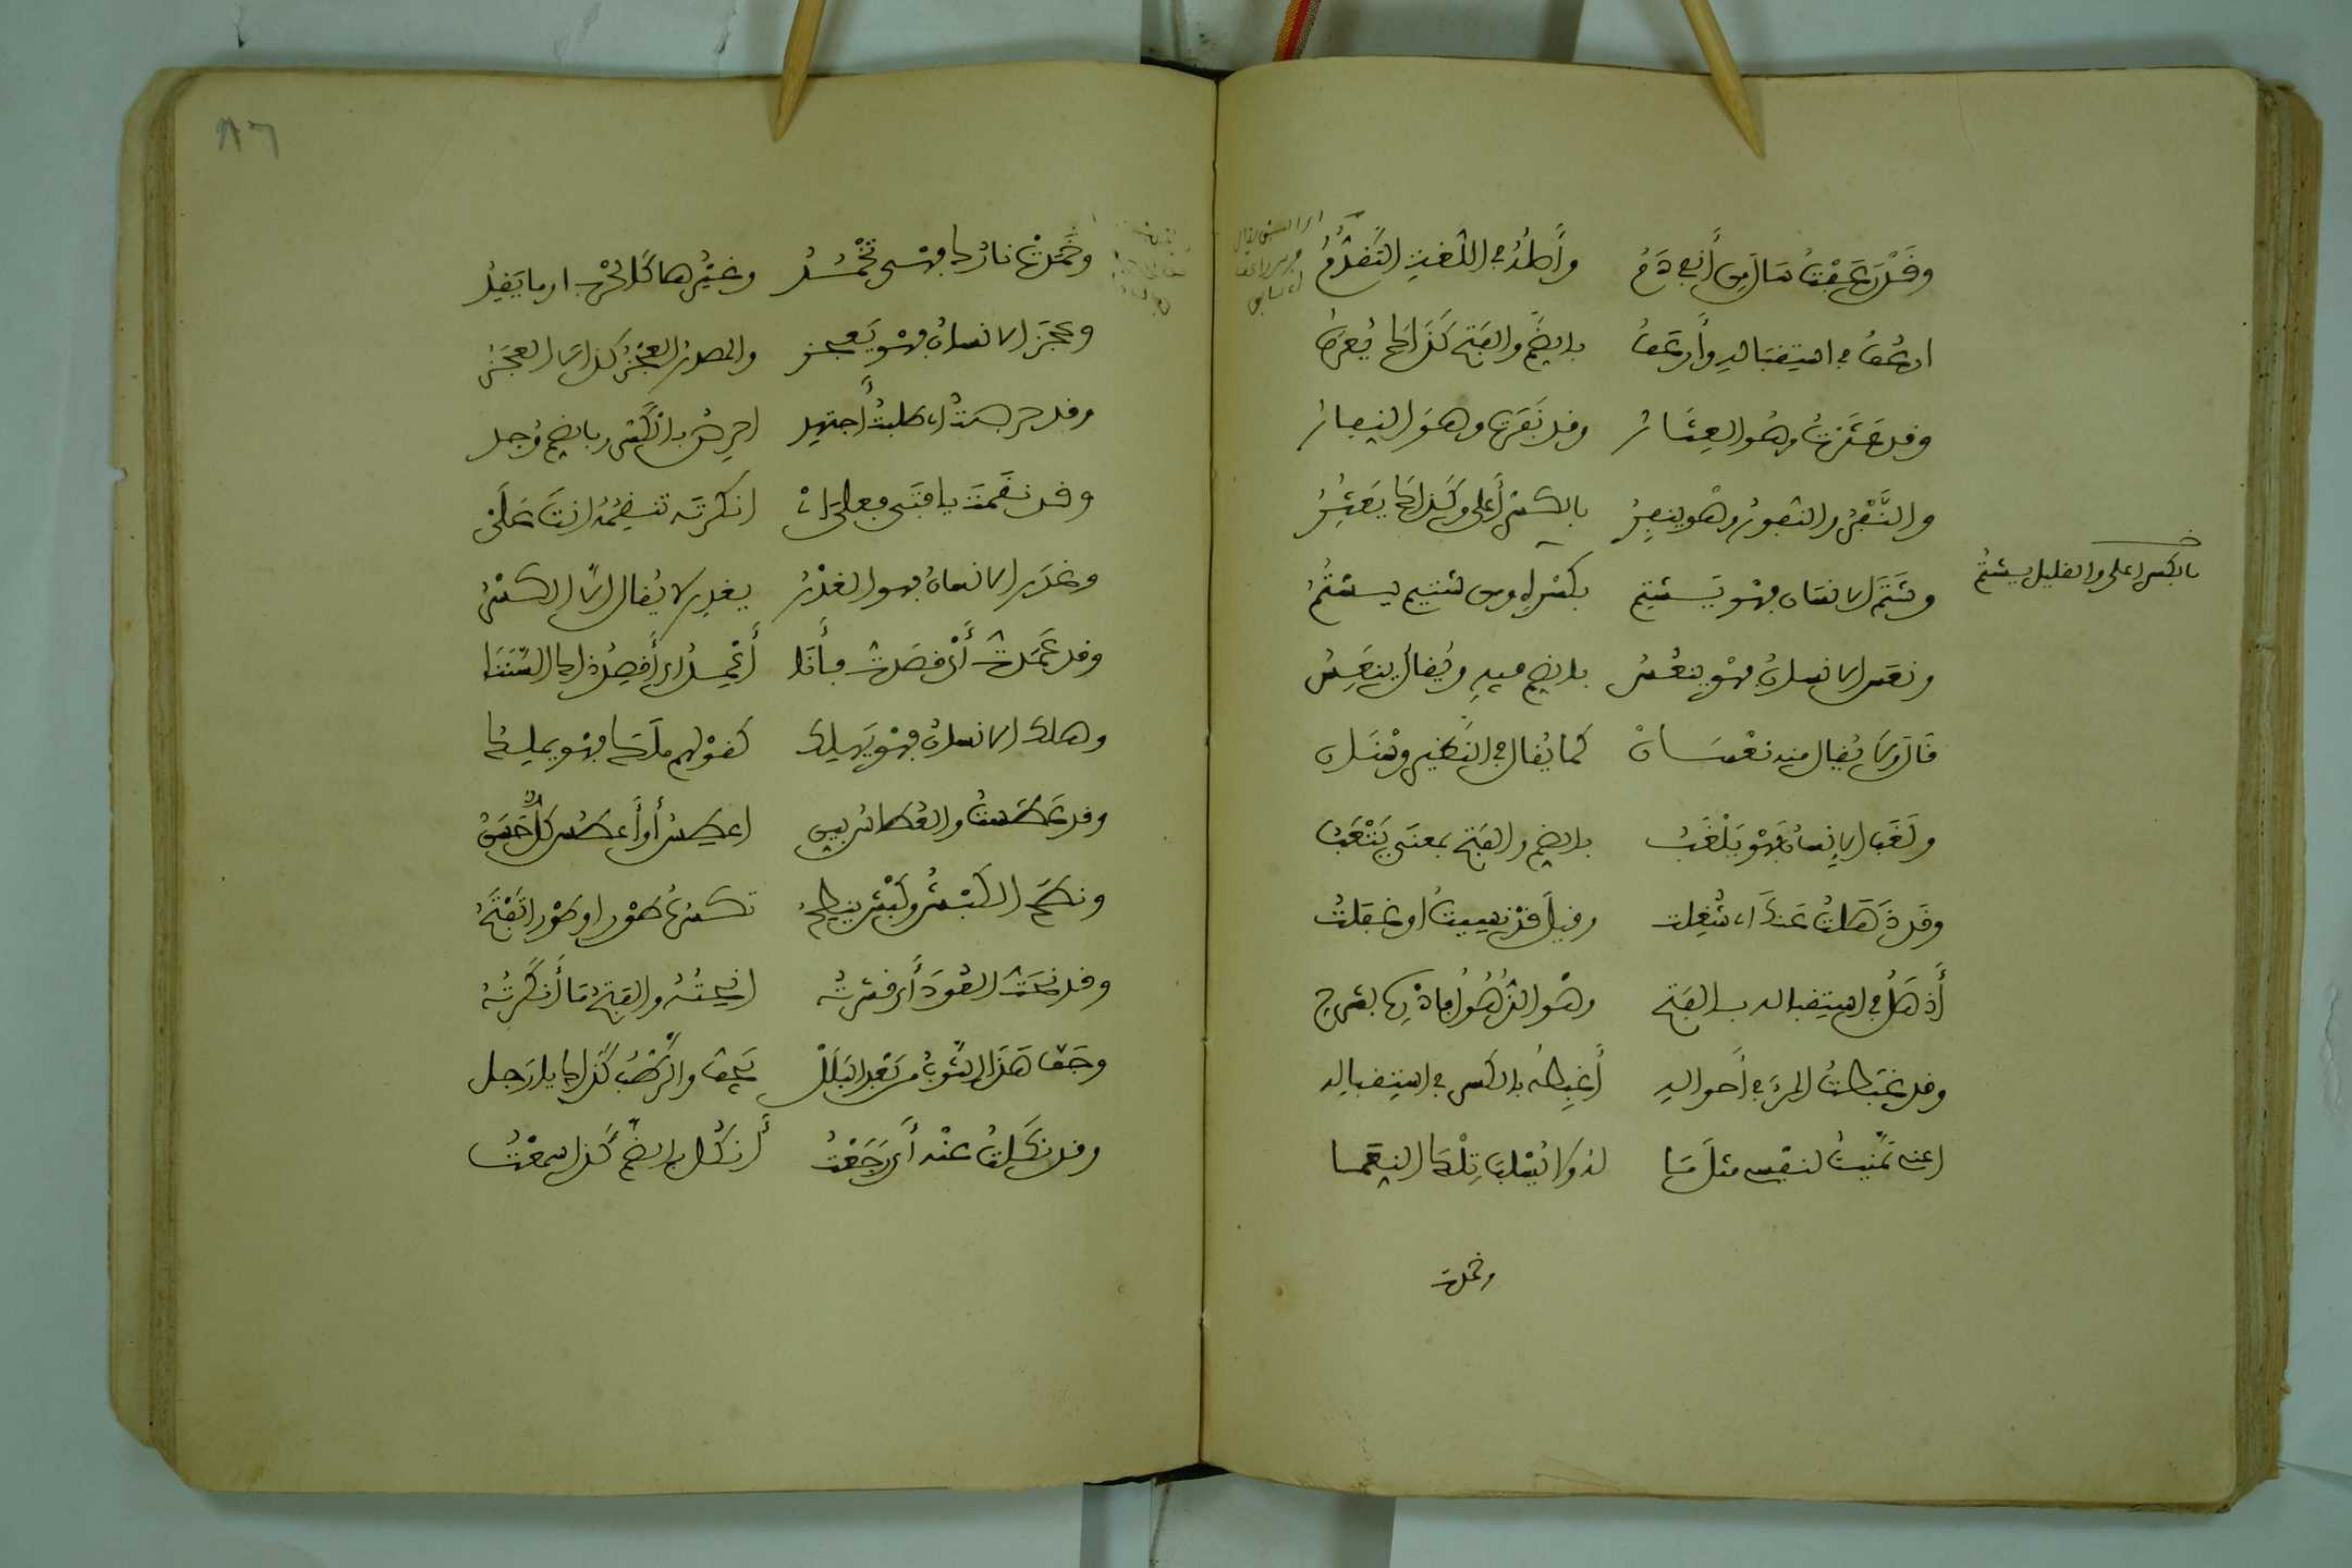 وقد رعفت سال من أنفي دم وأصله في اللغة التقدم
ارعف في استقباله وأرعف بالضم والفتح كذاك يعرف
وقد عثرت وهو العثار وقد نفرت وهو النفار
والنفر والنفور وهو ينفر بالكسر أعلى وكذاك يعثر
وشتم الانسان فهو يشتم بكسره ومن شتيم يشتم
بالكسر اعلى والقليل يشتم
ونعس الانسان فهو ينعس بالضم فيه ويقال ينعس
قالوا ولا يقال منه نعسان كما يقال في النظير وسنان
ولغب الإنسان فهو يلغب بالضم والفتح بمعنى يتعب
وقد ذهلت عنك أي شغلت وقيل قد نسيت او غفلت
أذهل في استقباله بالفتح وهو الذهول فادكر بشرح
وقد غبطت المرء في أحواله أغبطه بالكسر في استقباله
اعني تمنيت لنفسي مثل ما له ولا يسلب تلك النعما
وخمدت
٨٦
وخمدت نارك فهي تخمد وغيرها كالحرب او ما يقد
وعجز الانسان فهو يعجز والمصدر العجز كذاك العجز
وقد حرصت أي طلبت أجتهد احرص بالكسر وبالضم وجد
وقد نقمت يا فتى فعل انكرته تنقمه انت على
وغدر الانسان فهو الغدر يغدر لا يقال الا الكسر
وقد عمدت أي قصدت فأنا أعمد اي أقصد ذاك السننا
وهلك الانسان فهو يهلك كقولهم ملك فهو يملك
وقد عطست والعطاس بين اعطس أو أعطس كل حسن
ونطح الكبش وكبش ينطح تكسر طورا وطورا تفتح
وقد نحت العود أي قشرته انحته والفتح ما أنكرته
وجف هذا الثوب من بعد البلل يجف والرطب كذاك يا رجل
وقد نكلت عنه أي رجعت أنكل بالضم كذا سمعت